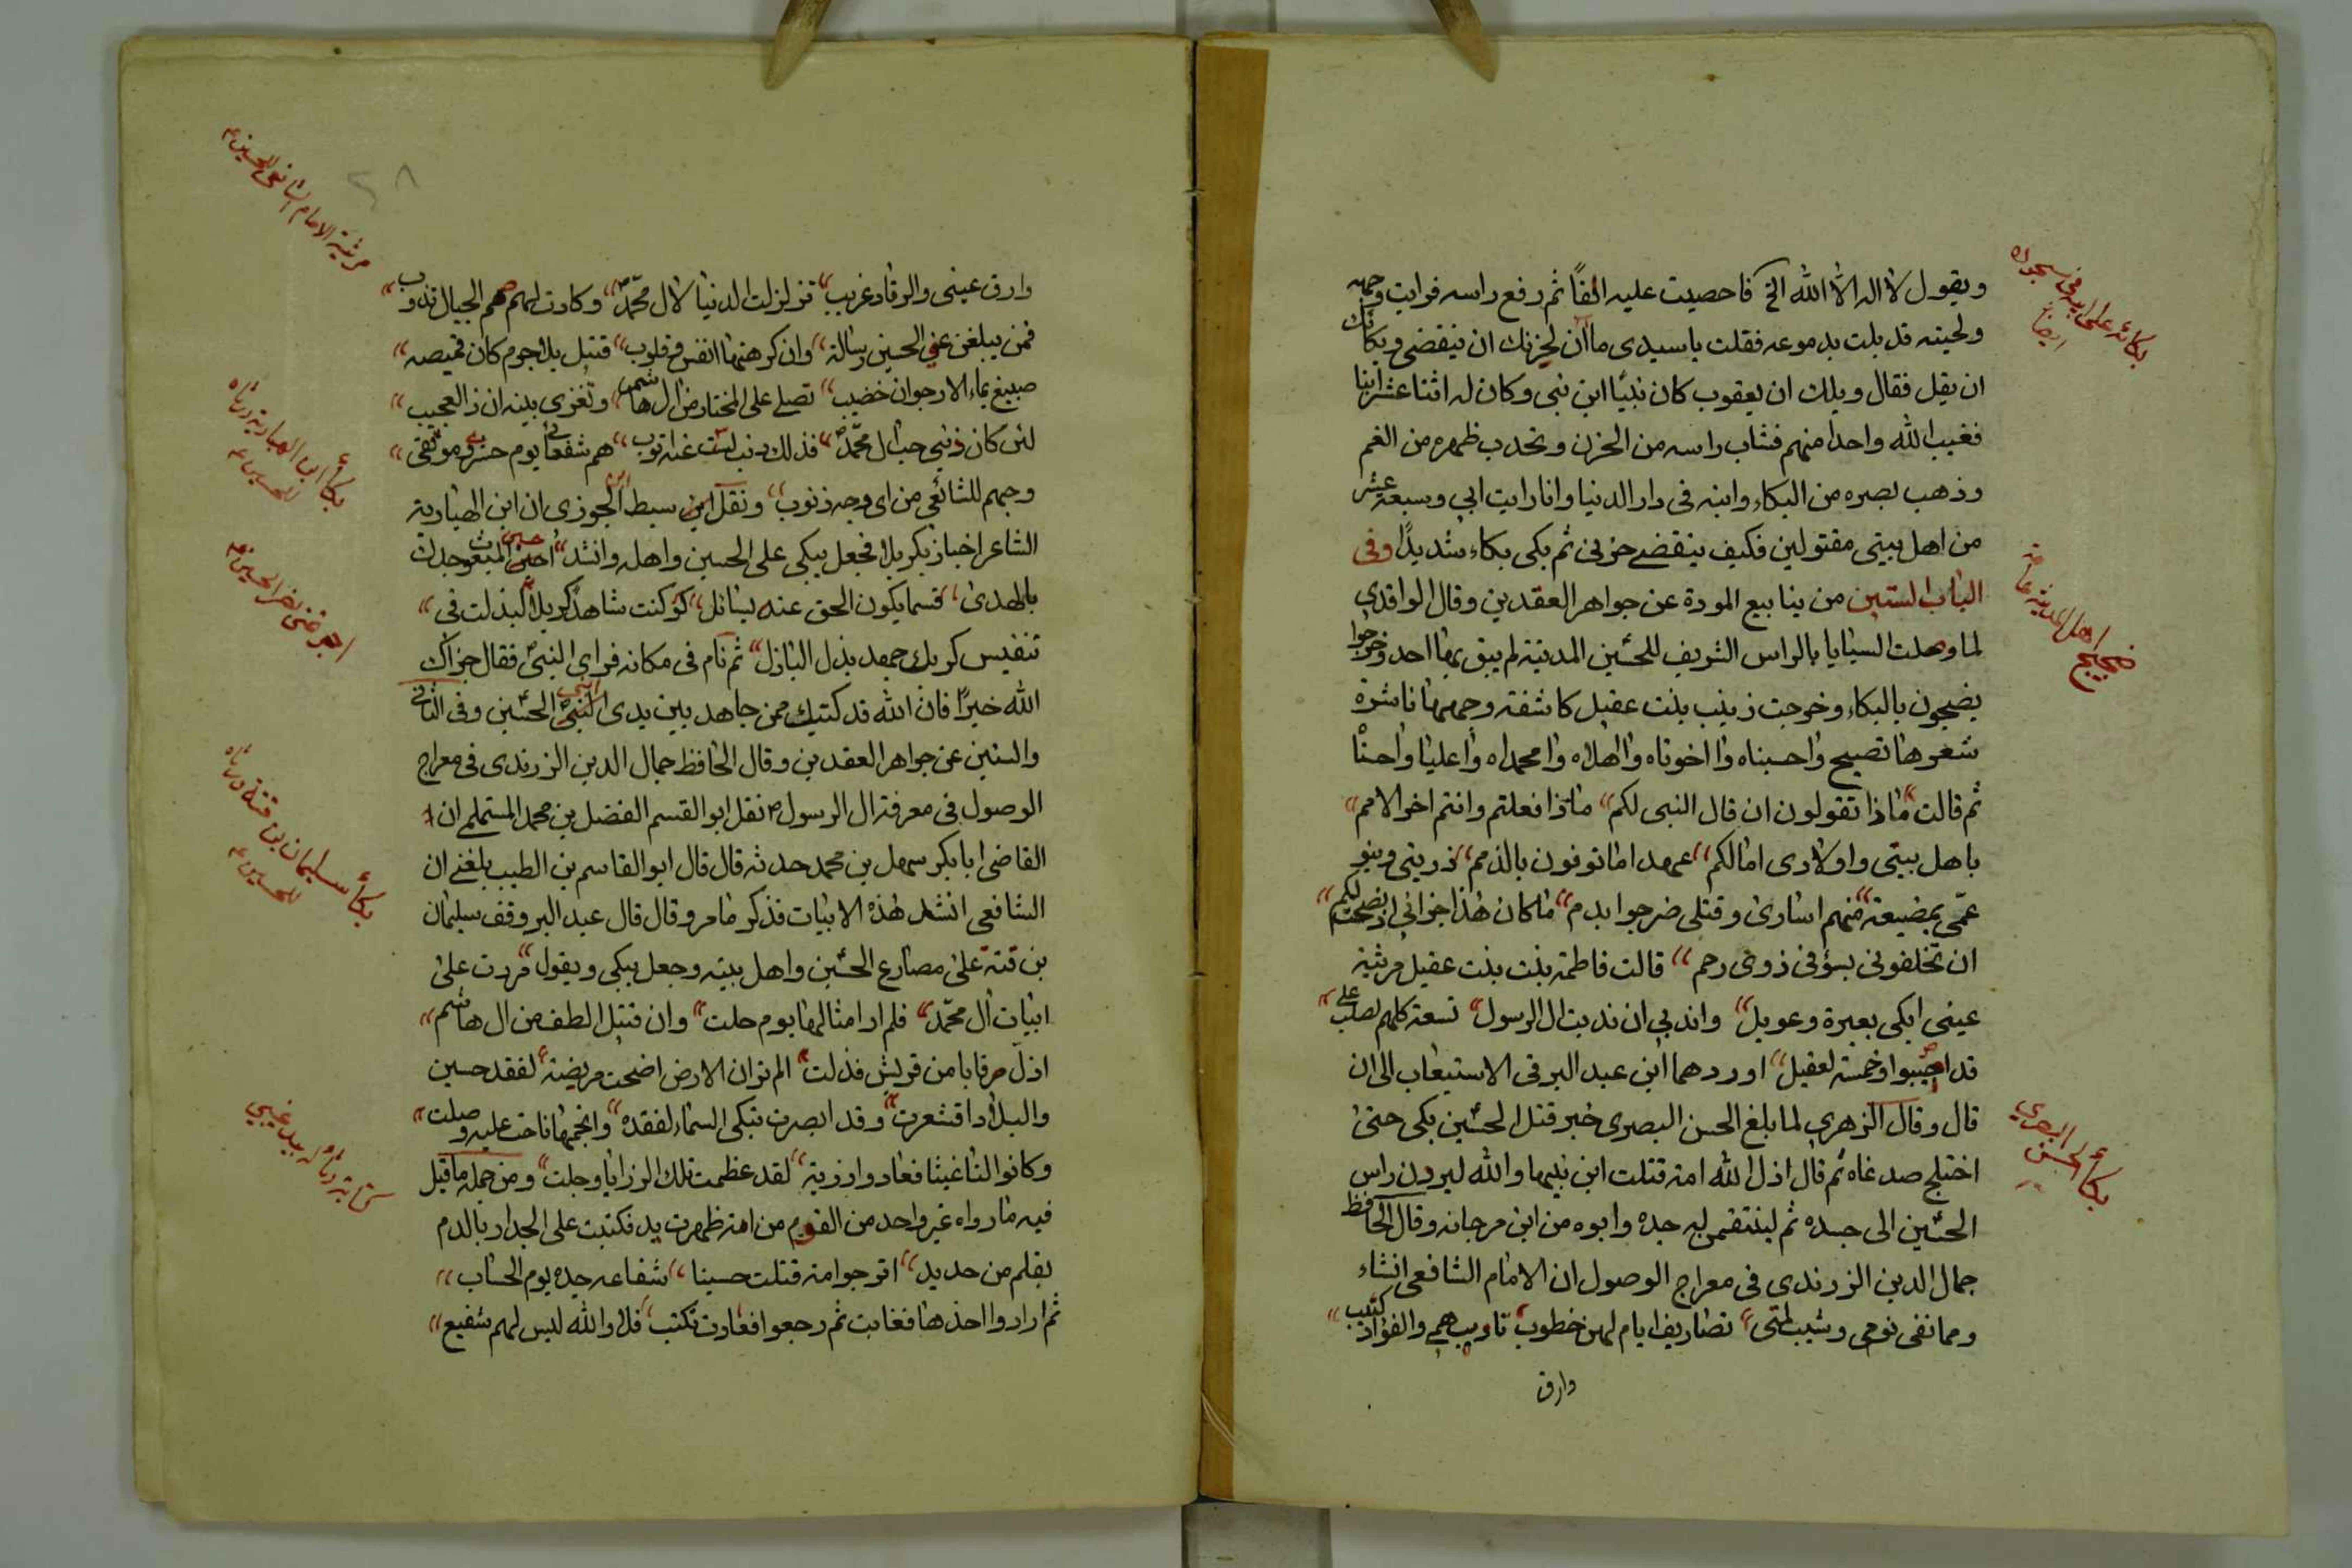 ويقول لا اله الا الله الخ فاحصيت عليه الفاً ثم رفع راسه فرايت وجهه
ولحيته قد بلت بدموعه فقلت ياسيدى ما آن لحزنك ان ينقضى وبكائك
ان يقل فقال ويلك ان يعقوب كان نبيًا ابن نبى وكان له اثنا عشر ابنا
فغيب الله واحدا منهم فشاب راسه من الحزن وتحدب ظهره من الغم
وذهب بصره من البكاء وابنه فى دار الدنيا وانا رايت ابي وسبعة عشر
من اهل بيتى مقتولين فكيف ينقضے حزنى ثم بكى بكاء شديدًا وفى
الباب الستين من ينابيع المودة عن جواهر العقدين وقال الواقدي
لما وصلت السبايا بالراس الشريف للحسين المدينة لم يبق بها احد وخرجوا
يضجون بالبكاء وخرجت زينب بنت عقيل كاشفة وجهها ناشرة
شعرها تصيح واحسيناه وا اخوتاه وا اهلاه وا محمداه وا عليا واحسنا
ثم قالت ماذا تقولون ان قال النبى لكم ماذا فعلتم وانتم اخر الامم
باهل بيتى واولادى امالكم عهد اما توفون بالذمم ذريتى وبنو
عمّى بمضيعة منهم اسارى وقتلى ضرجوا بدم ما كان هذا جزائى اذ نصحت لكم
ان تخلفونى بسؤ فى ذوى رحم قالت فاطمة بنت بنت عقيل مرثية
عينى ابكى بعبرة وعويل واندبي ان ندبت ال الرسول تسعة كلهم لصلب على
قد اصيبوا وخمسة لعقيل اوردهما ابن عبد البر فى الاستيعاب الى ان
قال وقال الزهرى لما بلغ الحسن البصرى خبر قتل الحسين بكى حتى
اختلج صدغاه ثم قال اذل الله امة قتلت ابن نبيها والله ليردن راس
الحسين الى جسده ثم لينتقمن له جده وابوه من ابن مرجانه وقال الحافظ
جمال الدين الزرندى فى معراج الوصول ان الامام الشافعى انشاء
ومما نفى نومى وشيب لمتى تصاريف ايام لهن خطوب تاوب همى والفؤاد كئيب
وارق
بكائه على ابيه فى سجوده
ايضا
ضجيج اهل المدينة عامة
بكاء الحسن البصرى
وارق عينى والرقاد غريب تزلزلت الدنيا لال محمّد وكادت لهم صم الجبال تذوب
فمن يبلغن عني الحسين رسالة وان كرهتها انفس وقلوب قتيل بلا جرم كان قميصه
صبيغ بماء الارجوان خضيب تصلے على المختار من ال هاشم وتغزى بنيه ان ذا لعجيب
لئن كان ذنبي حب ال محمّد فذلك ذنب لست عنه اتوب هم شفعائى يوم حشرى وموقفى
وحبهم للشافعي من اى وجه ذنوب ونقل ابن سبط ابن الجوزى ان ابن الهبارية
الشاعر اجتاز بكربلا فجعل يبكى على الحسين واهله وانشد احسين المبعوث جدك
بالهدى قسما يكون الحق عنه يسائل لو كنت شاهد كربلا لبذلت فى
تنفيس كربك جهد بذل الباذل ثم نام فى مكانه فراى النبى فقال جزاك
الله خيرًا فان الله قد كتبك ممن جاهد بين يدى الحسين وفى الثانى
والستين عن جواهر العقدين وقال الحافظ جمال الدين الزرندى فى معراج
الوصول فى معرفة ال الرسول نقل ابو القسم الفضل بن محمد المستملے ان
القاضى ابا بكر سهل بن محمد حدثه قال قال ابو القاسم بن الطيب بلغنے ان
الشافعى انشد هذه الابيات فذكر ما مر وقال قال عبد البر وقف سليمان
بن قتة على مصارع الحسين واهل بيته وجعل يبكى ويقول مررت على
ابيات ال محمّد فلم ار امثالها يوم حلت وان قتيل الطف من ال هاشم
اذل رقابا من قريش فذلت الم تر ان الارض اضحت مريضة لفقد حسين
والبلاد اقشعرت وقد ابصرت تبكى السماء لفقده وانجمها ناحت عليه وصلت
وكانوا لنا غيثا فعادوا رزية لقد عظمت تلك الرزايا وجلت ومن جملة ما قيل
فيه ما رواه غير واحد من القوم من انه ظهرت يد فكتبت على الجدار بالدم
بقلم من حديد اترجوا امة قتلت حسينا شفاعه جده يوم الحساب
ثم ارادوا اخذها فغابت ثم رجعوا فعادت تكتب فلا والله ليس لهم شفيع
مرثية الامام الشافعى الحسين ع
بكاء ابن الهبارية ورثاه
للحسين ع
بكاء سليمان بن قتة ورثاه
للحسين ع
٢٨